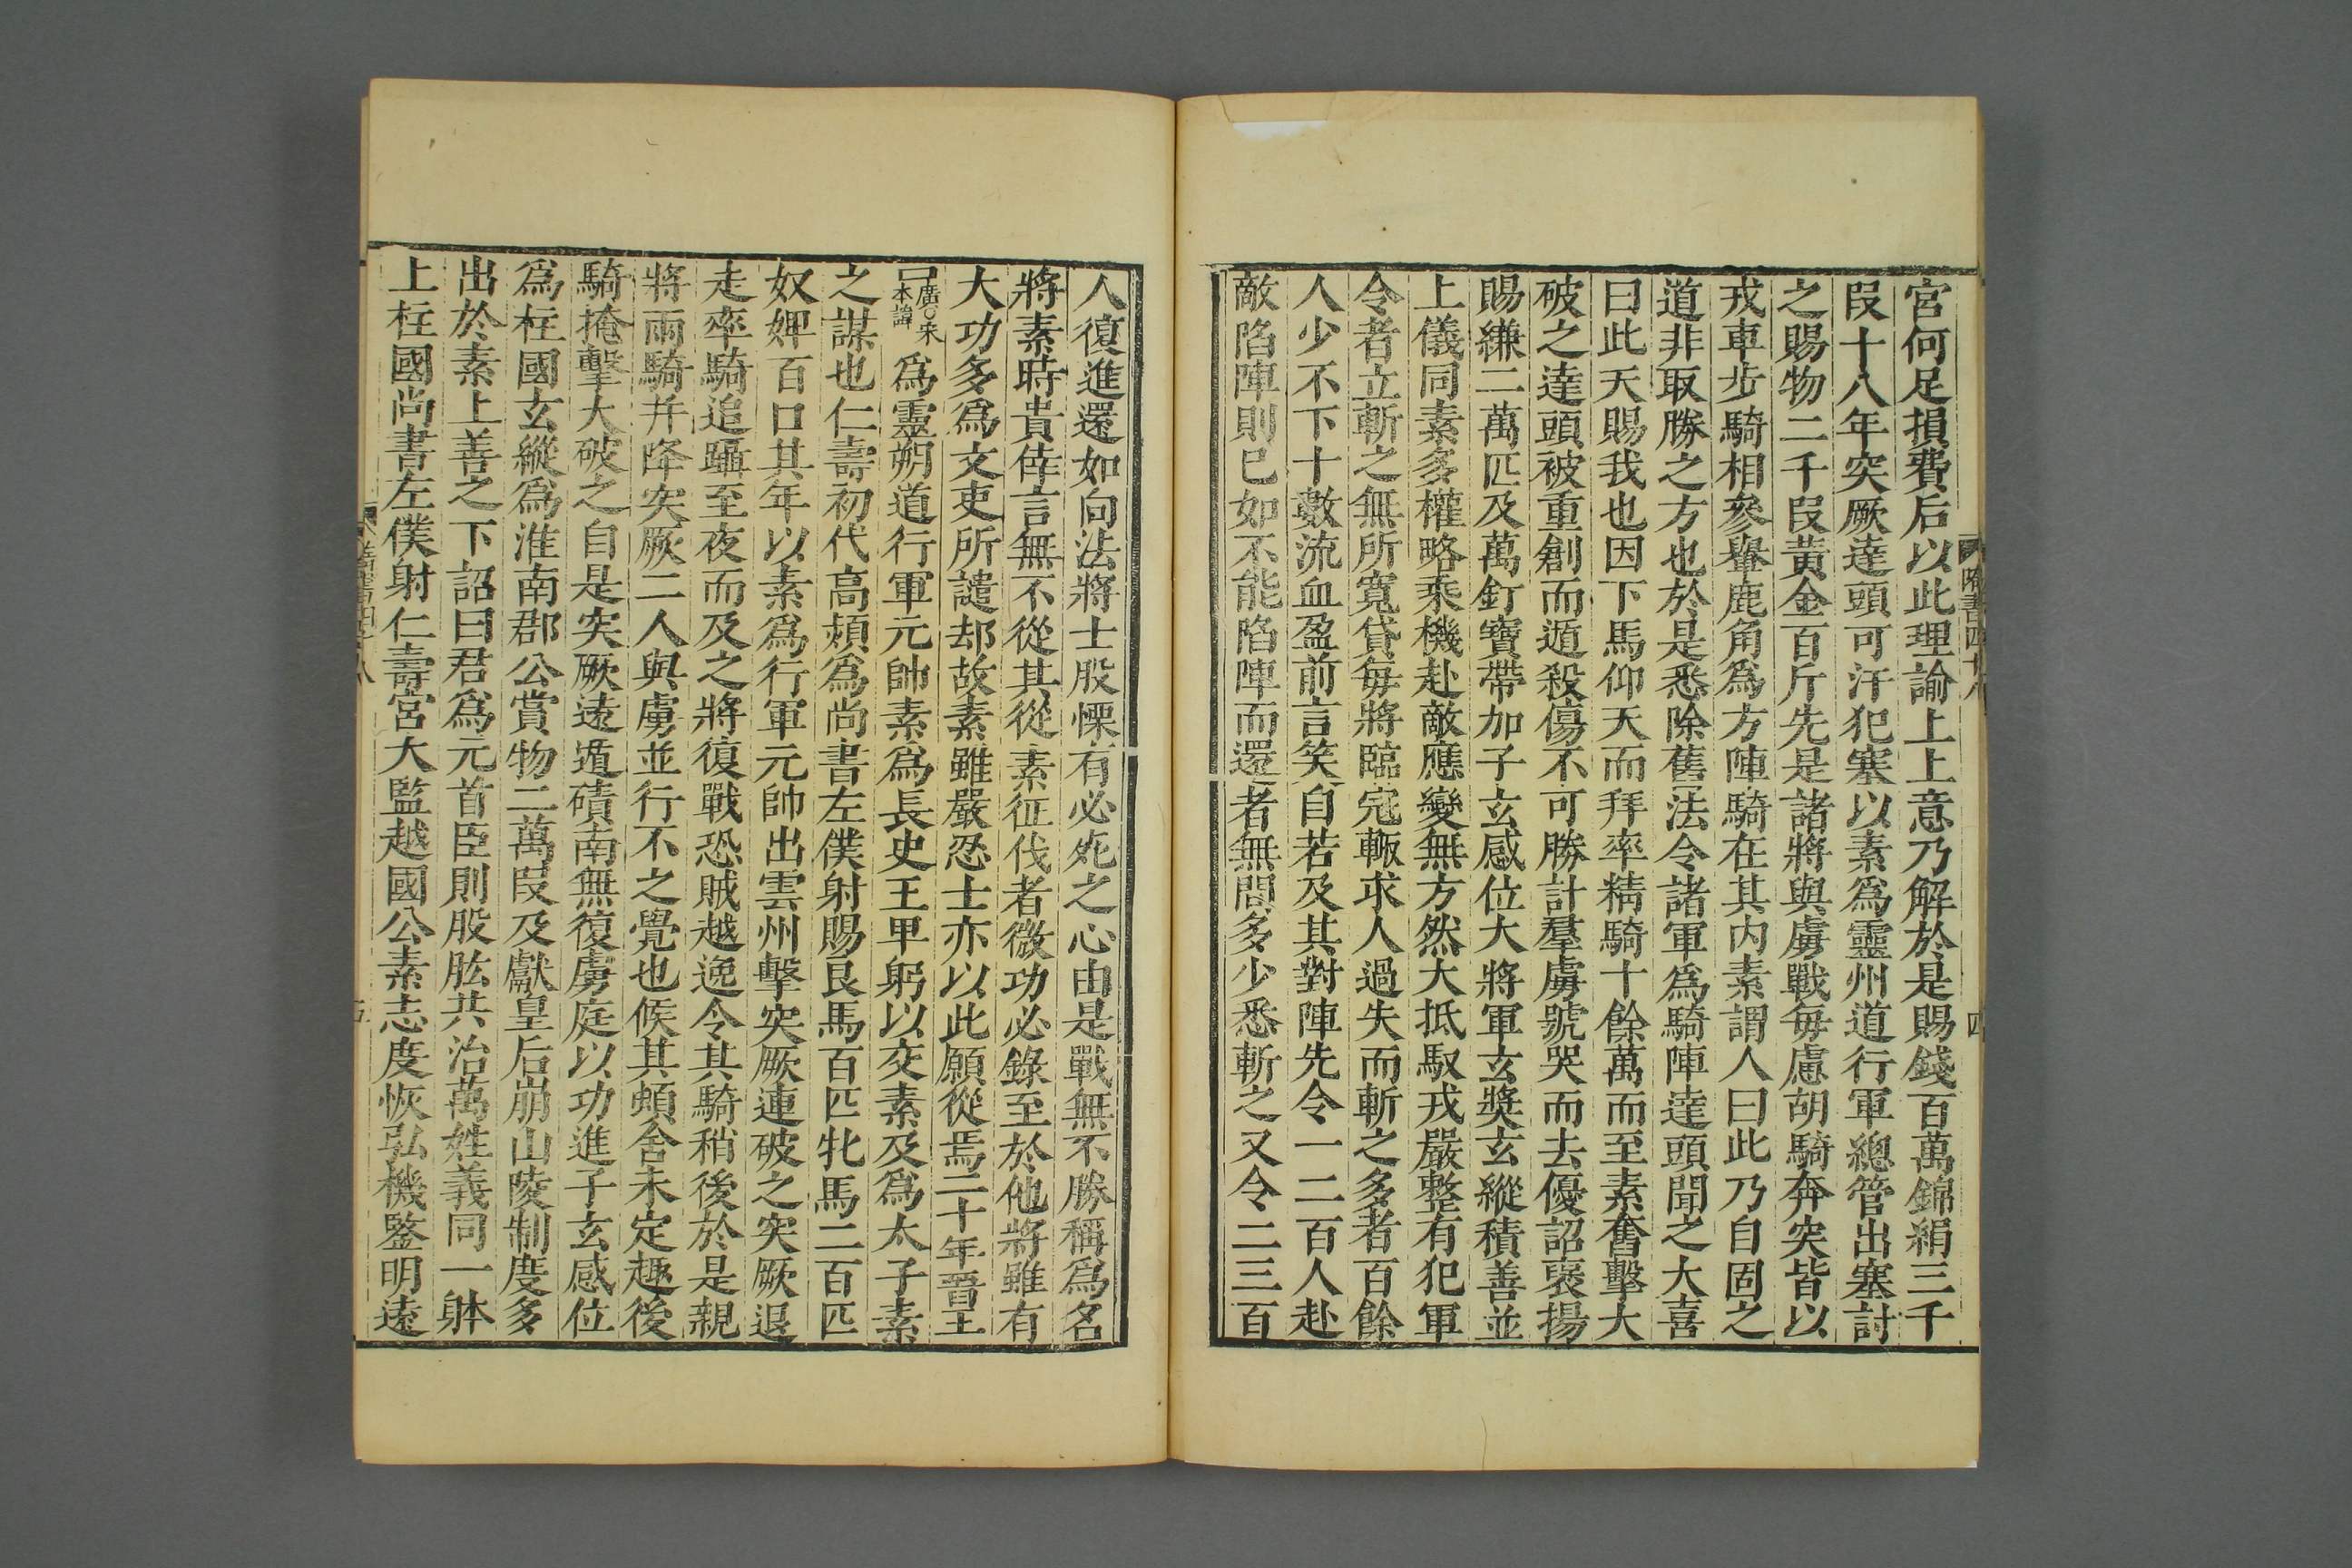 宮何足損費后以此理諭上上意乃解於是賜錢百萬錦絹三千
段十八年突厥達頭可汗犯塞以素爲靈州道行軍總管出塞討
之賜物二千段黃金百斤先是諸將與虜戰每慮胡騎奔突皆以
戎車步騎相參轝鹿角爲方陣騎在其內素謂人曰此乃自固之
道非取勝之方也於是悉除舊法令諸軍爲騎陣達頭聞之大喜
曰此天賜我也因下馬仰天而拜率精騎十餘萬而至素奮擊大
破之達頭被重創而遁殺傷不可勝計羣虜號哭而去優詔褒揚
賜縑二萬匹及萬釘寶帶加子玄感位大將軍玄獎玄縱積善並
上儀同素多權略乘機赴敵應變無方然大抵馭戎嚴整有犯軍
令者立斬之無所寬貸每將臨寇輙求人過失而斬之多者百餘
人少不下十數流血盈前言笑自若及其對陣先令一二百人赴
敵陷陣則已如不能陷陣而還者無問多少悉斬之又令二三百
隋書四十八
四
人復進還如向法將士股慄有必死之心由是戰無不勝稱爲名
將素時貴倖言無不從其從素征伐者微功必錄至於他將雖有
大功多爲文吏所譴却故素雖嚴忍士亦以此願從焉二十年晉王
廣○宋本諱爲靈朔道行軍元帥素爲長史王卑躬以交素及爲太子素
之謀也仁壽初代高熲爲尚書左僕射賜良馬百匹牝馬二百匹
奴婢百口其年以素爲行軍元帥出雲州擊突厥連破之突厥退
走率騎追躡至夜而及之將復戰恐賊越逸令其騎稍後於是親
將兩騎并降突厥二人與虜並行不之覺也候其頓舍未定趣後
騎掩擊大破之自是突厥遠遁磧南無復虜庭以功進子玄感位
爲柱國玄縱爲淮南郡公賞物二萬段及獻皇后崩山陵制度多
出於素上善之下詔曰君爲元首臣則股肱共治萬姓義同一躰
上柱國尚書左僕射仁壽宮大監越國公素志度恢弘機鑒明遠